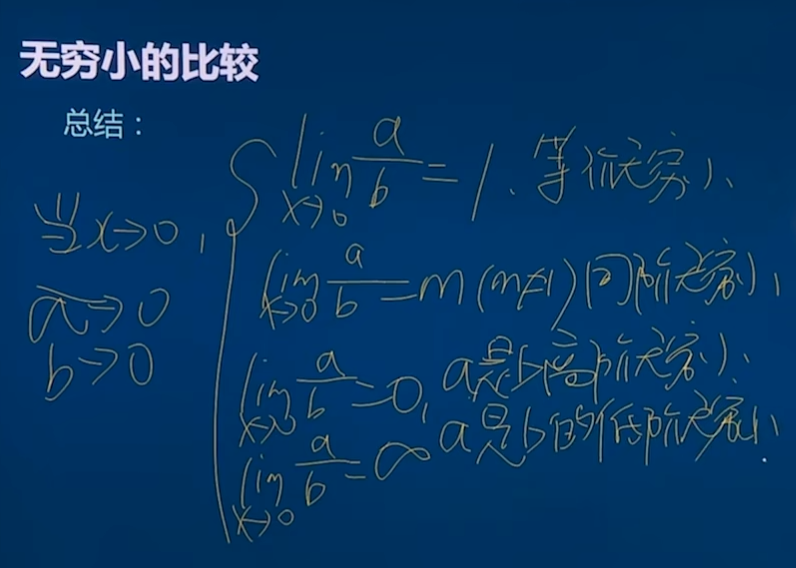 无穷小的比较
总结：
当x→0,
a→0
b→0
lim x→0 a/b = 1、等价无穷小、
lim x→0 a/b = m (m≠1) 同阶无穷小、
lim x→0 a/b = 0, a是b高阶无穷小、
lim x→0 a/b = ∞ a是b的低阶无穷小、